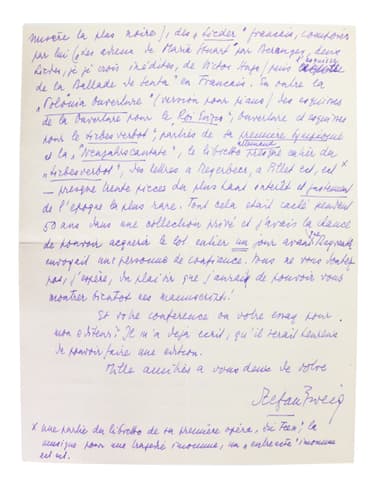 misère la plus noire), des „Lieder" français, composés
par lui („les adieux de Marie Stuart" par Beranger, deux
Lieder, je crois inédites, de Victor Hugo) puis l'esquisse
de la Ballade de Senta" en Français. En outre la
„Polonia Ouverture" (version pour piano) des esquisses
de la Ouverture pour le Roi Enzio", ouverture et esquisses
pour le Liebesverbot", parties de sa première symphonie
et la „ Neujahrscantate", le libretto allemand presque entier du
„Liebesverbot", des lettres a Meyerbeer, a Pillet etc, etc x
— presque trente pièces du plus haut intérêt et justement
de l'epoque la plus rare. Tout cela etait caché pendant
50 ans dans une collection privé et j'avais la chance
de pouvoir acquerir le lot entier un jour avant que
envoyait une personne de confiance. Vous ne vous doutez
pas, j'espère, du plaisir que j'aurais de pouvoir vous
montrer bientot ces manuscrits!
Et votre conference ou votre essay pour
mon editeur? Il m'a dejà ecrit, qu'il serait heureux
de pouvoir faire une edition.
Mille amitiés a vous deux de votre
Stefan Zweig
x une partie du libretto de sa première opéra. Die Feen; la
musique pour une tragedie inconnue, un „entreacte" inconnu
etc etc.